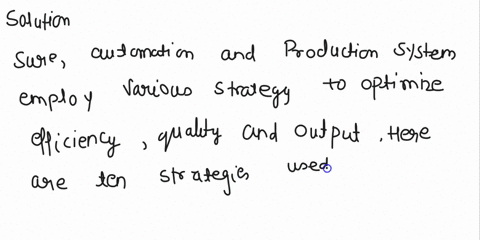 Solution
Sure, automation and Production System
employ various strategy to optimize
efficiency, quality and output. Here
are ten strategies used